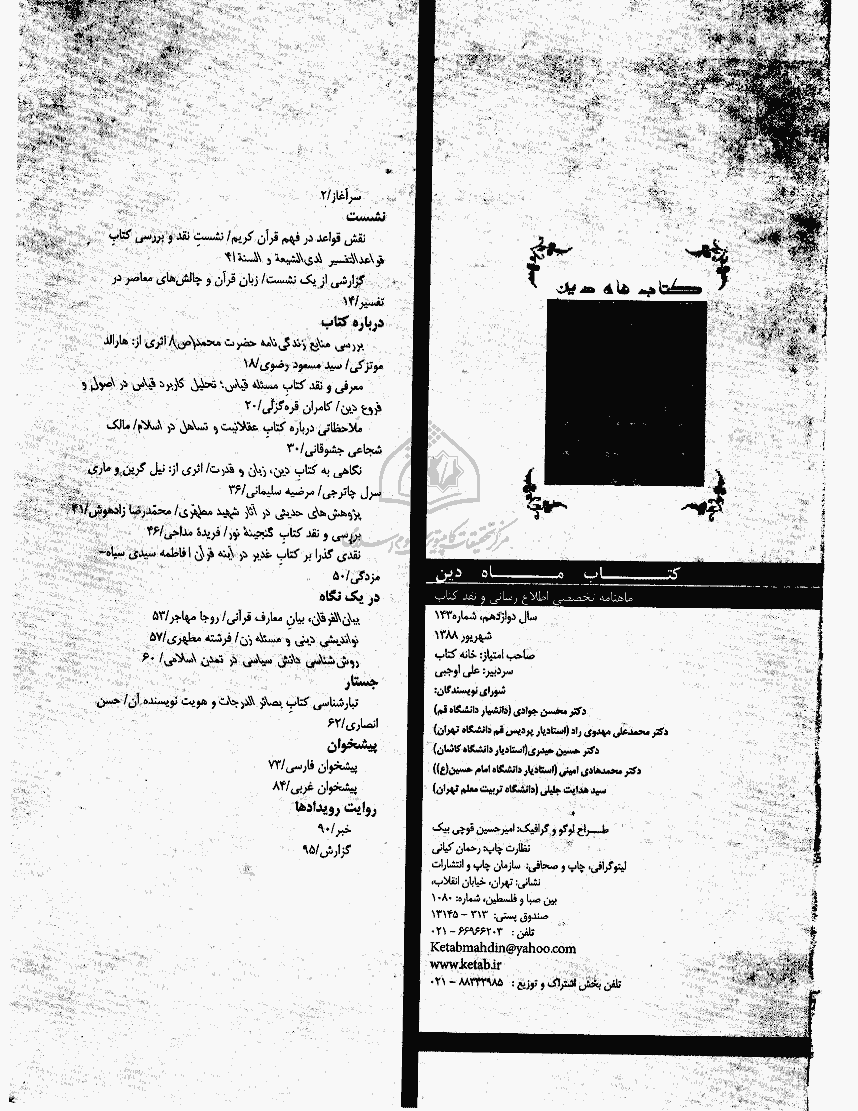 کتاب ماه دین
کتـــاب مـــاه دین
ماهنامه تخصصی اطلاع رسانی و نقد کتاب
سال دوازدهم، شماره۱۴۳
شهریور ۱۳۸۸
صاحب امتیاز: خانه کتاب
سردبیر: علی اوجبی
شورای نویسندگان:
دکتر محسن جوادی (دانشیار دانشگاه قم)
دکتر محمدعلی مهدوی راد (استادیار پردیس قم دانشگاه تهران)
دکتر حسین حیدری(استادیار دانشگاه کاشان)
دکتر محمدهادی امینی (استادیار دانشگاه امام حسین(ع))
سید هدایت جلیلی (دانشگاه تربیت معلم تهران)
طـــراح لوگو و گرافیک: امیرحسین قوچی بیک
نظارت چاپ: رحمان کیانی
لیتوگرافی، چاپ و صحافی: سازمان چاپ و انتشارات
نشانی: تهران، خیابان انقلاب،
بین صبا و فلسطین، شماره: ۱۰۸۰
صندوق پستی: ۳۱۳ – ۱۳۱۴۵
تلفن : ۶۶۹۶۶۲۰۳ – ۰۲۱
Ketabmahdin@yahoo.com
www.ketab.ir
تلفن بخش اشتراک و توزیع : ۸۸۳۴۲۹۸۵ – ۰۲۱
سرآغاز/۲
نشست
نقش قواعد در فهم قرآن کریم/ نشستِ نقد و بررسی کتاب
قواعدالتفسیر لدی‌الشیعة و السنة/۴
گزارشی از یک نشست/ زبان قرآن و چالش‌های معاصر در
تفسیر/۱۴
درباره کتاب
بررسی منابع زندگی‌نامه حضرت محمد(ص)/ اثری از: هارالد
موتزکی/ سید مسعود رضوی/۱۸
معرفی و نقد کتابِ مسئله قیاس؛ تحلیل کاربرد قیاس در اصول و
فروع دین/ کامران قره‌گزلی/۲۰
ملاحظاتی درباره کتابِ عقلانیت و تساهل در اسلام/ مالک
شجاعی جشوقانی/۳۰
نگاهی به کتابِ دین، زبان و قدرت/ اثری از: نیل گرین و ماری
سرل چاترجی/ مرضیه سلیمانی/۳۶
پژوهش‌های حدیثی در آثار شهید مطهری/ محمدرضا زادهوش/۴۱
بررسی و نقد کتاب گنجینهٔ نور/ فریدهٔ مداحی/۴۶
نقدی گذرا بر کتابِ غدیر در آینه قرآن / فاطمه سیدی سیاه–
مزدگی/۵۰
در یک نگاه
بیان‌الفرقان، بیان معارف قرآنی/ روجا مهاجر/۵۳
نواندیشی دینی و مسئله زن/ فرشته مطهری/۵۷
روش‌شناسی دانش سیاسی در تمدن اسلامی/ ۶۰
جستار
تبارشناسی کتابِ بصائر الدرجات و هویت نویسنده آن/ حسن
انصاری/۶۲
پیشخوان
پیشخوان فارسی/۷۳
پیشخوان غربی/۸۴
روایت رویدادها
خبر/۹۰
گزارش/۹۵